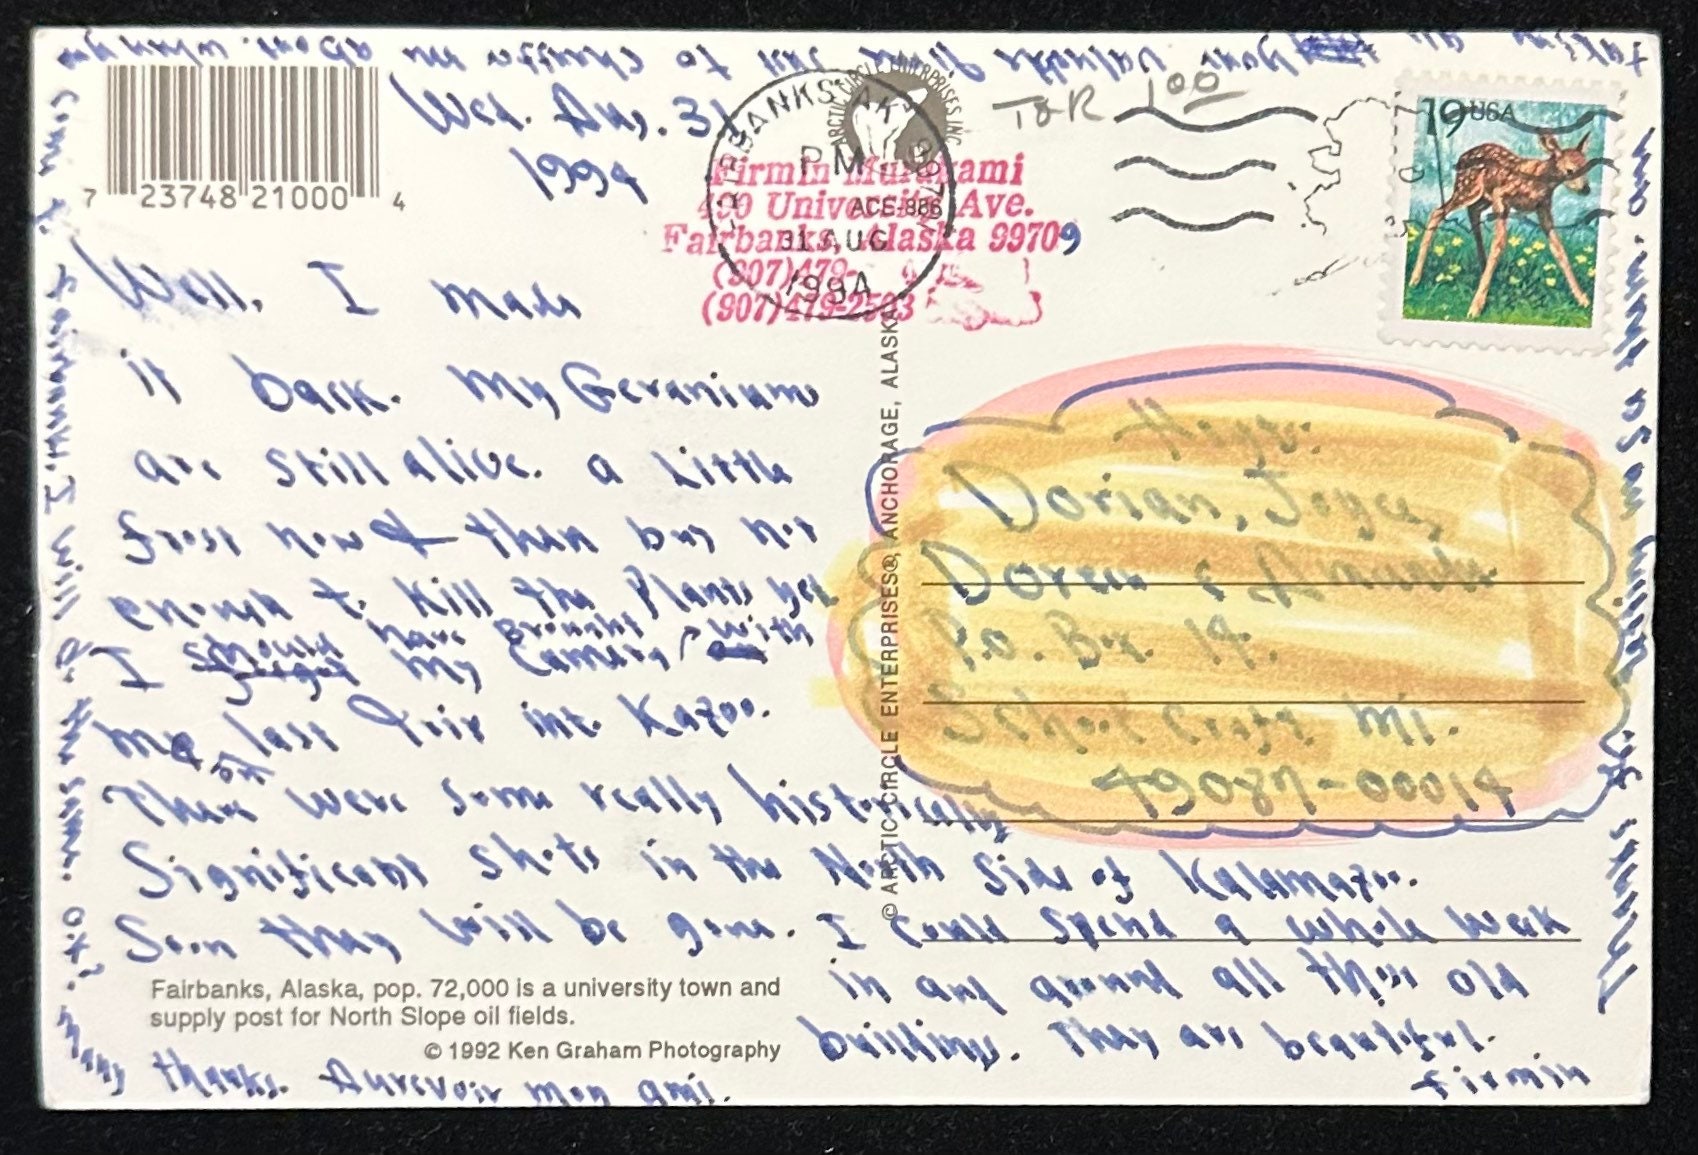 Wed. Aug. 31
1994
Well, I made
it back. My Geraniums
are still alive. a little
frost now & then but not
enough to kill the plants yet
I should have brought my camera, with
me on last trip into Kazoo.
There were some really historically
Significant shots in the North Side of Kalamazoo.
Soon they will be gone. I could spend a whole week
in and around all those old
buildings. They are beautiful.
Firmin
Thanks so
your valuable time just to chauffer me about. when you
come to I will do the same. OK? many
thanks. Aurevoir mon ami.
7 23748 21000 4
ARCTIC CIRCLE ENTERPRISES INC.
ACE-886
FAIRBANKS AK 997
PM
31 AUG
1994
Firmin Murakami
490 University Ave.
Fairbanks, Alaska 99709
(907)479-
(907)479-2593
T&R 100
19 USA
© ARCTIC CIRCLE ENTERPRISES®, ANCHORAGE, ALASKA
Dorian, Joyce,
Doreen & Amanda
P.O. Box 14.
School Craft Mi.
49087-00014
Fairbanks, Alaska, pop. 72,000 is a university town and
supply post for North Slope oil fields.
© 1992 Ken Graham Photography